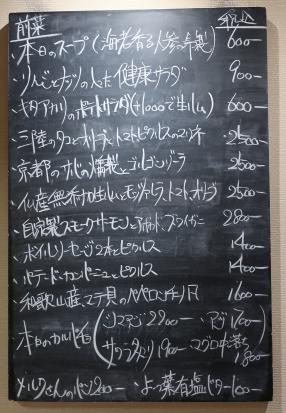 前菜 税込
・本日のスープ(海老香る人参の 製) 600-
・りんごとナッツの入った健康サラダ 900-
・キタアカリのポテトサラダ(+1000で生ハム) 600-
・三陸のタコとオリーブ、トマト、ピクルスのマリネ 2500-
・京都のサバの燻製とゴルゴンゾーラ 2500-
・仏産無添加生ハムとモッツァレラ、トマト、オリーブ 2500-
・自家製スモークサーモンとアボカド、ブライガニ 2800-
・ボイルソーセージ2本とピクルス 1400-
・パテ・ド・カンパーニュとピクルス 1400-
・和歌山産マテ貝のペペロンチーノ 1600-
・本日のカルパッチョ(シマアジ2200- アジ1700-
サワラ 1900- マグロ中落ち 1800-
メルクさんのパン200- ・よつ葉有塩バター100-